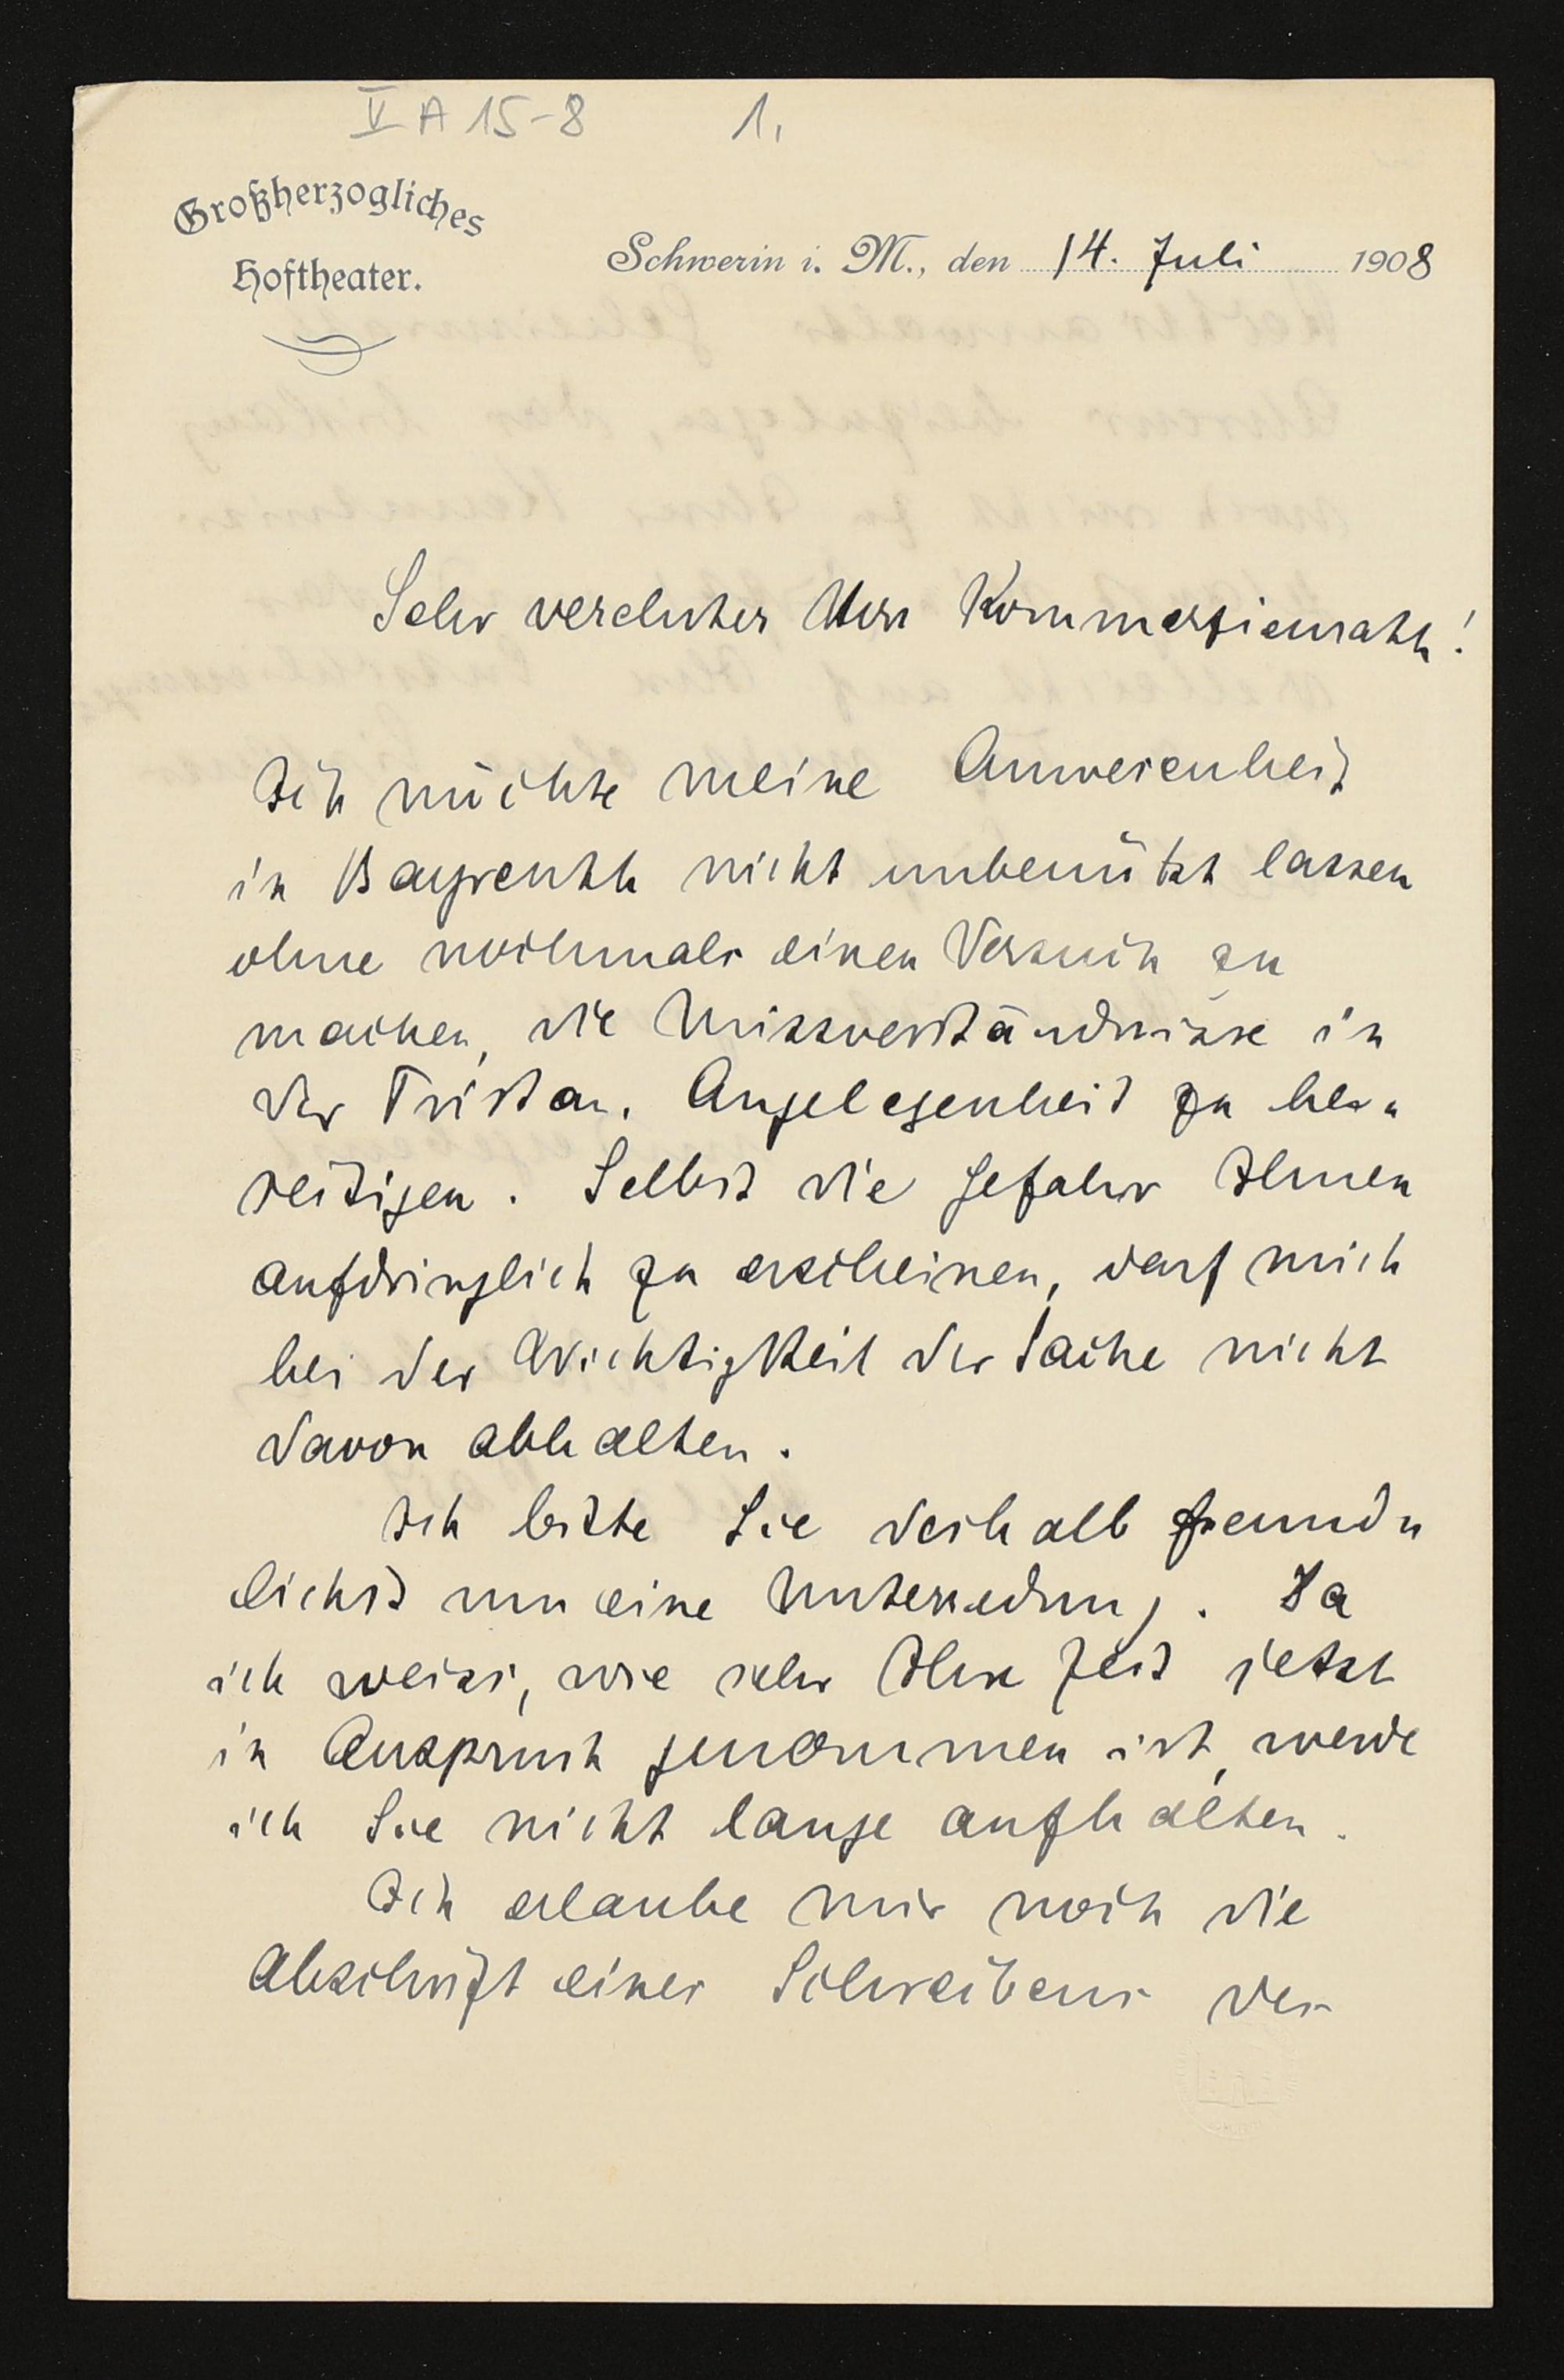 V A 15-8 1.
Großherzogliches
Hoftheater.
Schwerin i. M., den 14. Juli 1908
Sehr verehrter Herr Kommerzienrath!
Ich möchte meine Anwesenheit
in Bayreuth nicht unbenützt lassen
ohne nochmals einen Versuch zu
machen, die Missverständnisse in
der Tristan-Angelegenheit zu be-
seitigen. Selbst die Gefahr Ihnen
aufdringlich zu erscheinen, darf mich
bei der Wichtigkeit der Sache nicht
davon abhalten.
Ich bitte Sie deshalb freund-
lichst um eine Unterredung. Da
ich weiss, wie sehr Ihre Zeit jetzt
in Anspruch genommen ist, werde
ich Sie nicht lange aufhalten.
Ich erlaube mir noch die
Abschrift eines Schreibens des